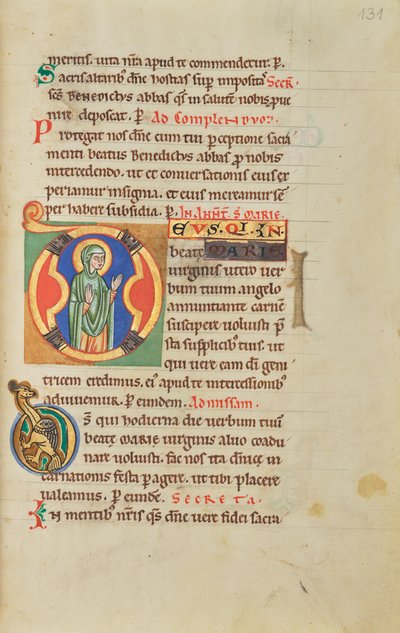 131
meritis. vita nr̄a apud te commendetur. P̄.
Sacris altarib; dn̄e hostias sup̄ impositas Secr̄.
sc̄s BENEDICTVS abbas q̄s in salutē nobis p̄ue
nire deposcat. P̄. Ad Complendum.
Protegat nos dn̄e cum tui p̄ceptione sacra
menti beatus Benedictus abbas p̄ nobis
intercedendo. ut et conversationis eius ex
periamur insignia. et eius mereamur sē
per habere subsidia. P̄. In Annūt. S. MARIE.
EVS. QI. IN
beate MARIE
virginis utero ver
bum tuum angelo
annuntiante carnē
suscipere voluisti p̄
sta supplicib; tuis. ut
qui vere eam dī geni
tricem credimus. ei apud te intercessionib;
adiuvemur. P̄ eundem. Ad missam.
DS qui hodierna die verbum tuū
beate MARIE virginis alvo coadu
nare voluisti. fac nos ita dn̄ice in
carnationis festa p̄agere. ut tibi placere
valeamus. P̄ eunde. Secreta.
In mentib; nr̄is q̄s dn̄e vere fidei sacra